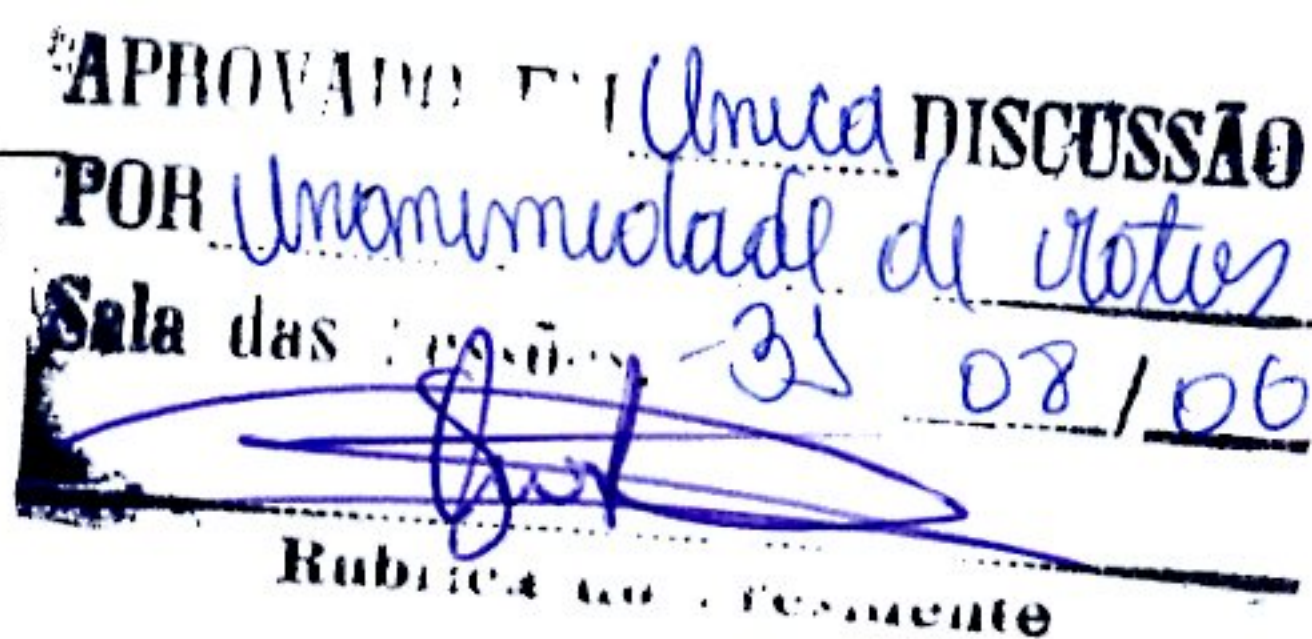 APROVADO EM Unica DISCUSSÃO
POR Unanimidade de votos
Sala das Sessões, 31 08/06
Rubrica do Presidente